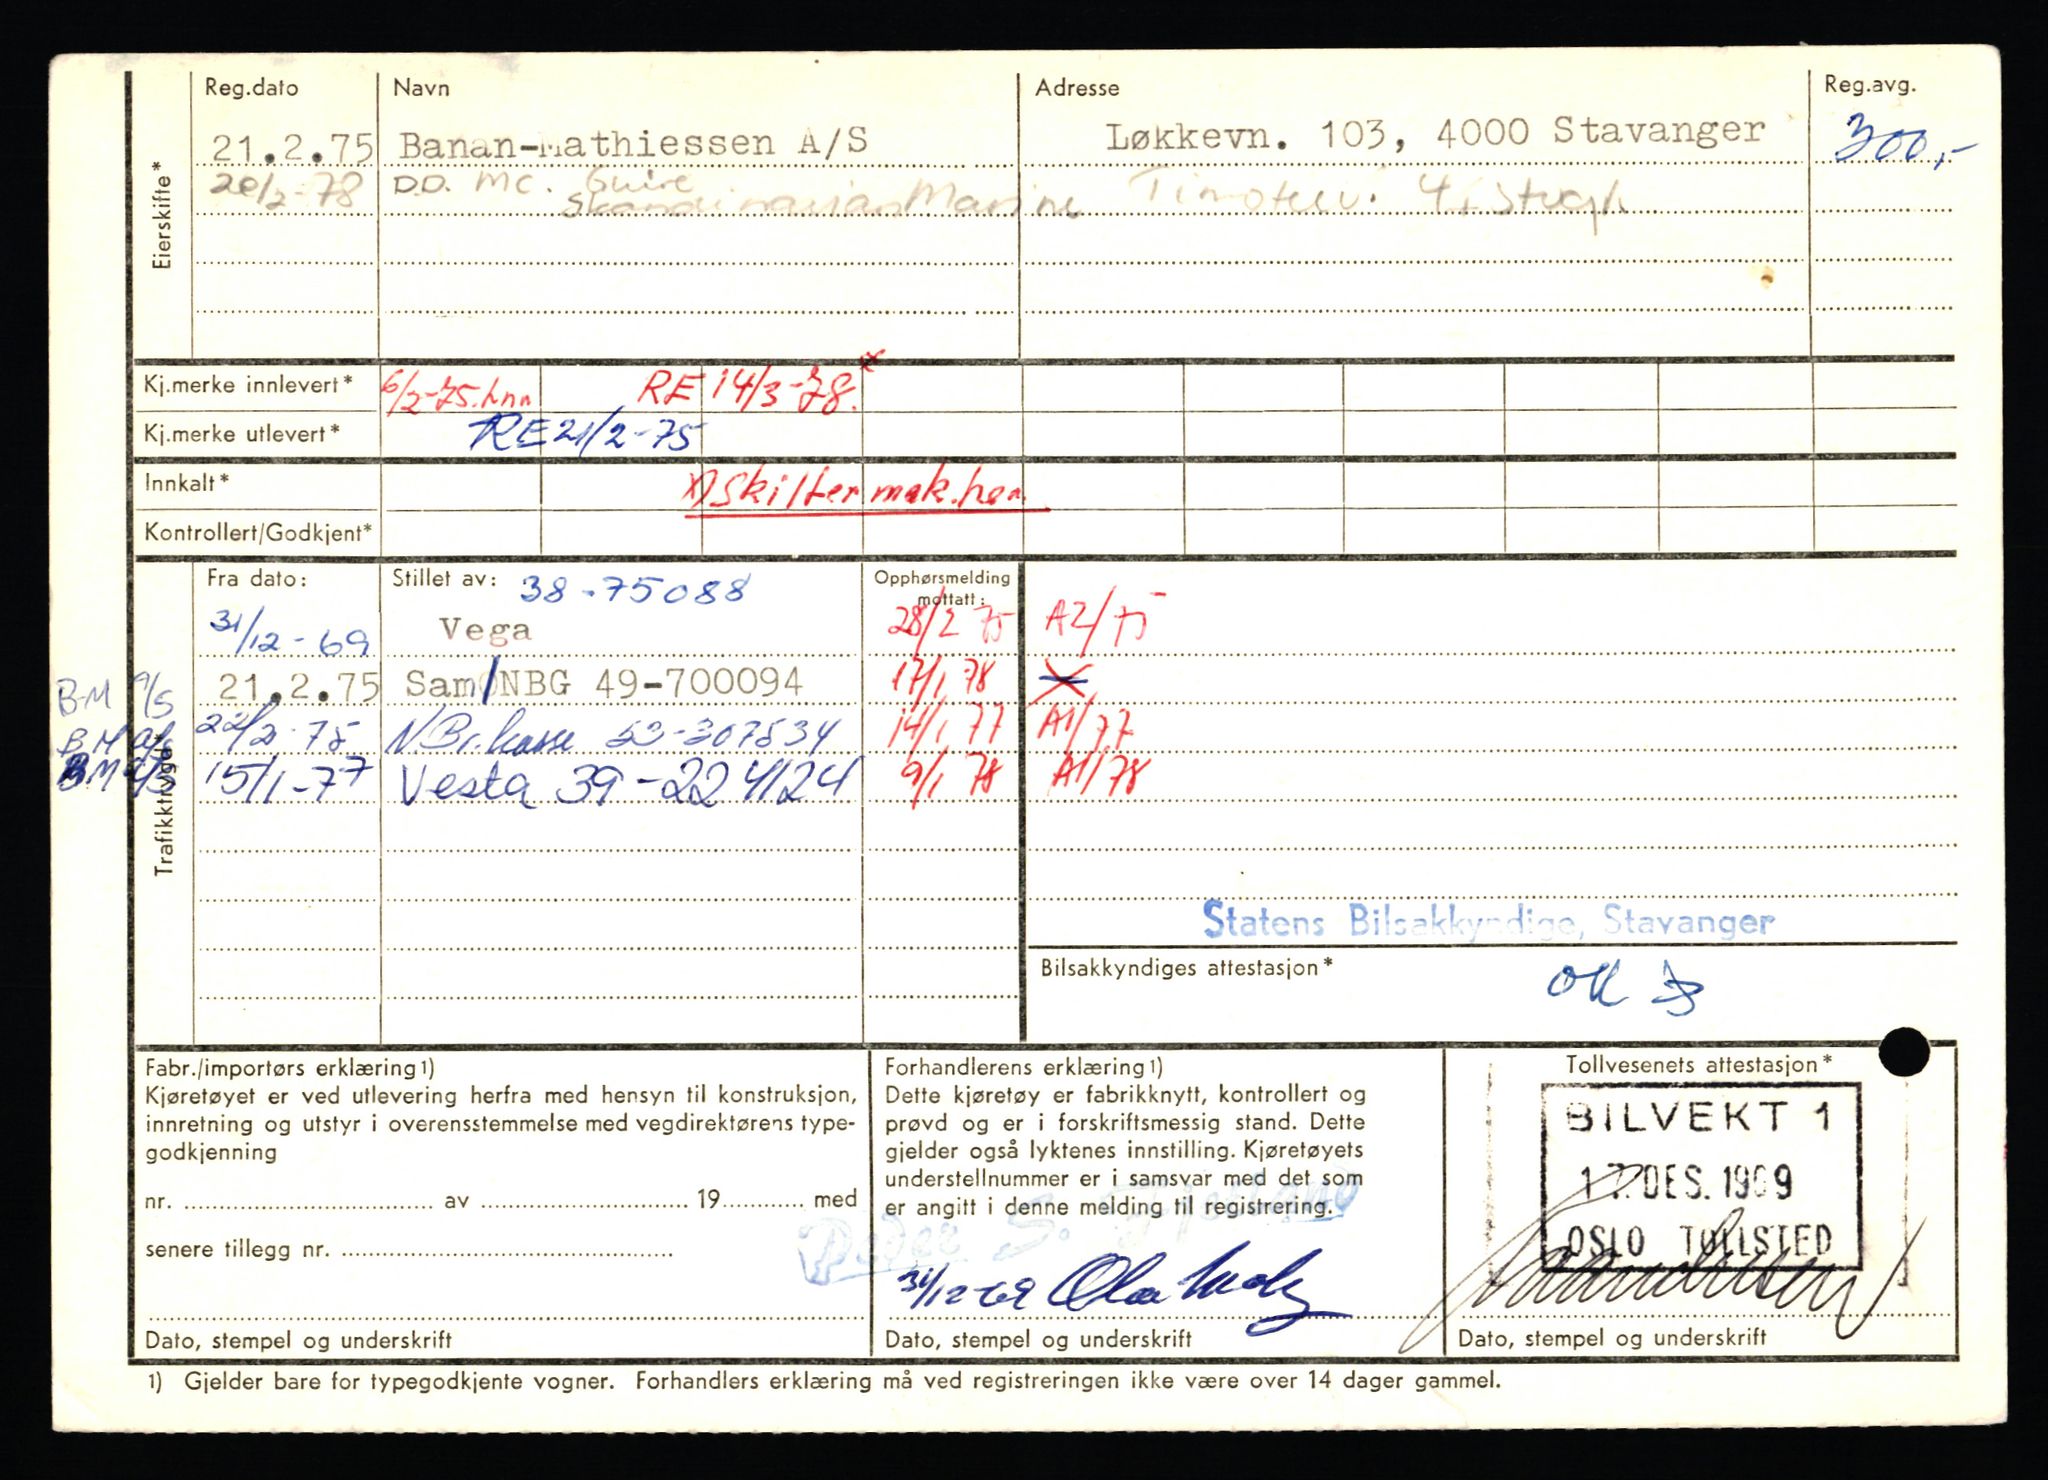 Reg.dato Navn Adresse Reg.avg.
21.2.75 Banan-Mathiessen A/S Løkkevn. 103, 4000 Stavanger 300,-
20/2-78 D.D. Mc. Guire
Skandinavian Marine
Eierskifte*
Kj.merke innlevert* 6/2-75. RE 14/3-78.
Kj.merke utlevert* RE 21/2-75
Innkalt* x) Skilter mak.
Kontrollert/Godkjent*
Trafikktrygd*
Fra dato: Stillet av: 38-75088 Opphørsmelding mottatt:
31/12-69 Vega 28/2 75 A2/75
21.2.75 Sam/NBG 49-700094 17/1 78
22/2-75 N.Br.kasse 53-307534 14/1 77 A1/77
15/1-77 Vesta 39-224124 9/1 78 A1/78
Statens Bilsakkyndige, Stavanger
Bilsakkyndiges attestasjon* OK
Fabr./importørs erklæring 1)
Kjøretøyet er ved utlevering herfra med hensyn til konstruksjon,
innretning og utstyr i overensstemmelse med vegdirektørens type-
godkjenning
nr. av 19 med
senere tillegg nr.
Dato, stempel og underskrift
Forhandlerens erklæring 1)
Dette kjøretøy er fabrikknytt, kontrollert og
prøvd og er i forskriftsmessig stand. Dette
gjelder også lyktenes innstilling. Kjøretøyets
understellnummer er i samsvar med det som
er angitt i denne melding til registrering.
31/12-69
Dato, stempel og underskrift
Tollvesenets attestasjon*
BILVEKT 1
17.DES.1969
OSLO TOLLSTED
Dato, stempel og underskrift
1) Gjelder bare for typegodkjente vogner. Forhandlers erklæring må ved registreringen ikke være over 14 dager gammel.